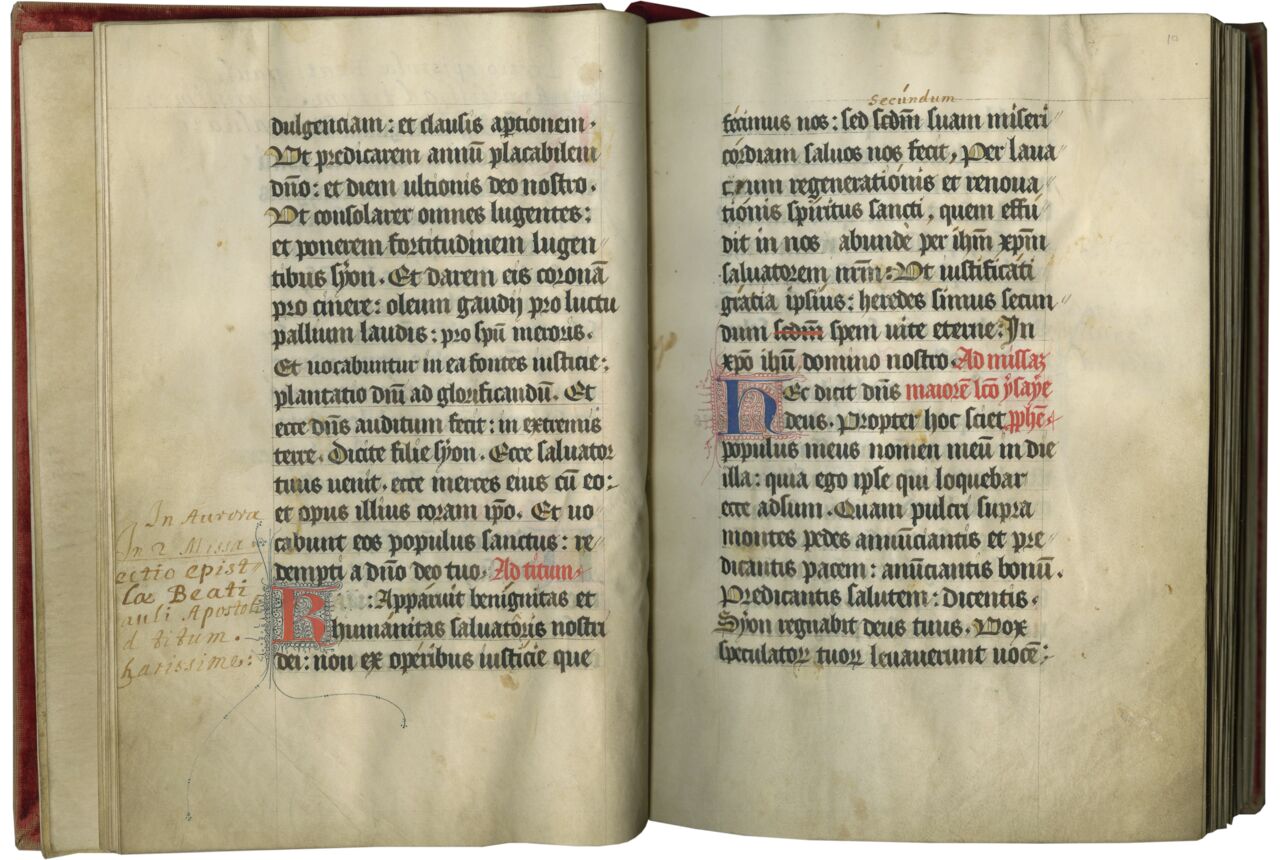 dulgenciam : et clausis aptionem.
Vt predicarem annū placabilem
dño : et diem ultionis deo nostro.
Vt consolarer omnes lugentes :
et ponerem fortitudinem lugen
tibus syon. Et darem eis coronā
pro cinere : oleum gaudij pro luctu
pallium laudis : pro spū meroris.
Et uocabuntur in ea fontes iusticie :
plantatio dñi ad glorificandū. Et
ecce dñs auditum fecit : in extremis
terre. Dicite filie syon. Ecce saluator
tuus uenit. ecce merces eius cū eo :
et opus illius coram ipo. Et uo
cabunt eos populus sanctus : re
dempti a dño deo tuo. Ad titum.
In Aurora
In 2 Missa
ectio epist
læ Beati
auli Apostoli
d titum.
harissime :
K : Apparuit benignitas et
humanitas saluatoris nostri
dei : non ex operibus iusticie que
10
secundum
fecimus nos : sed scdm̄ suam miseri
cordiam saluos nos fecit, Per laua
crum regenerationis et renoua
tionis spiritus sancti, quem effu
dit in nos abunde per ihm̄ xpm̄
saluatorem nrm̄ : Vt iustificati
gratia ipsius : heredes simus secun
dum scdm̄ spem uite eterne. In
xpō ihū domino nostro. Ad missaȝ
Hec dicit dñs maiorē lcō ysaye
deus. Propter hoc sciet pphē.
populus meus nomen meū in die
illa : quia ego ipse qui loquebar
ecce adsum. Quam pulcri supra
montes pedes annūciantis et pre
dicantis pacem : anūciantis bonū.
Predicantis salutem : dicentis.
Syon regnabit deus tuus. Vox
speculatoꝝ tuoꝝ leuauerunt uocē :